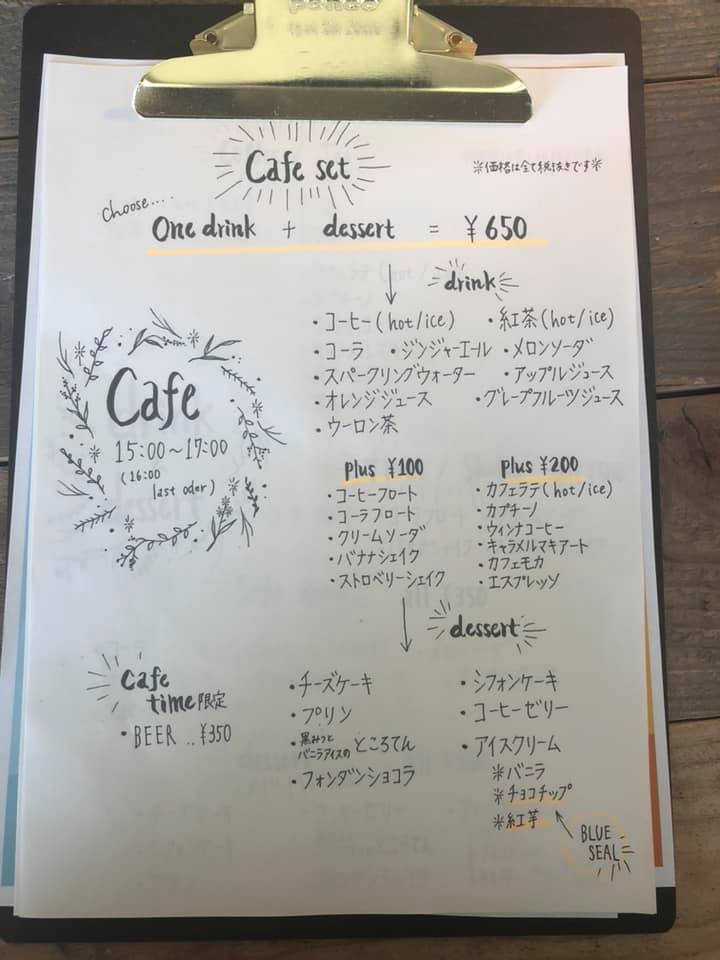 Cafe set
※価格は全て税抜きです※
choose....
One drink + dessert = ¥650
drink
・コーヒー(hot/ice) ・紅茶(hot/ice)
・コーラ ・ジンジャーエール ・メロンソーダ
・スパークリングウォーター ・アップルジュース
・オレンジジュース ・グレープフルーツジュース
・ウーロン茶
Cafe
15:00~17:00
(16:00
last oder)
Plus ¥100
・コーヒーフロート
・コーラフロート
・クリームソーダ
・バナナシェイク
・ストロベリーシェイク
Plus ¥200
・カフェラテ(hot/ice)
・カプチーノ
・ウィンナコーヒー
・キャラメルマキアート
・カフェモカ
・エスプレッソ
dessert
Cafe
time限定
・BEER ..¥350
・チーズケーキ
・プリン
・黒みつと
バニラアイスの ところてん
・フォンダンショコラ
・シフォンケーキ
・コーヒーゼリー
・アイスクリーム
※バニラ
※チョコチップ
※紅芋
BLUE
SEAL